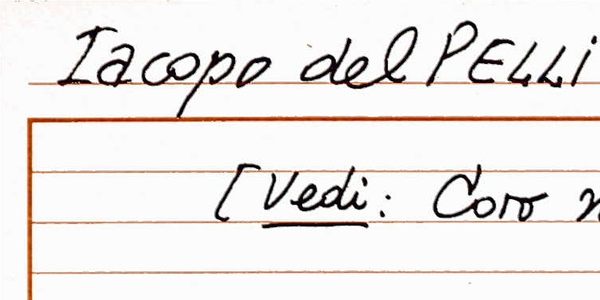 Iacopo del PELLI
[Vedi: Coro